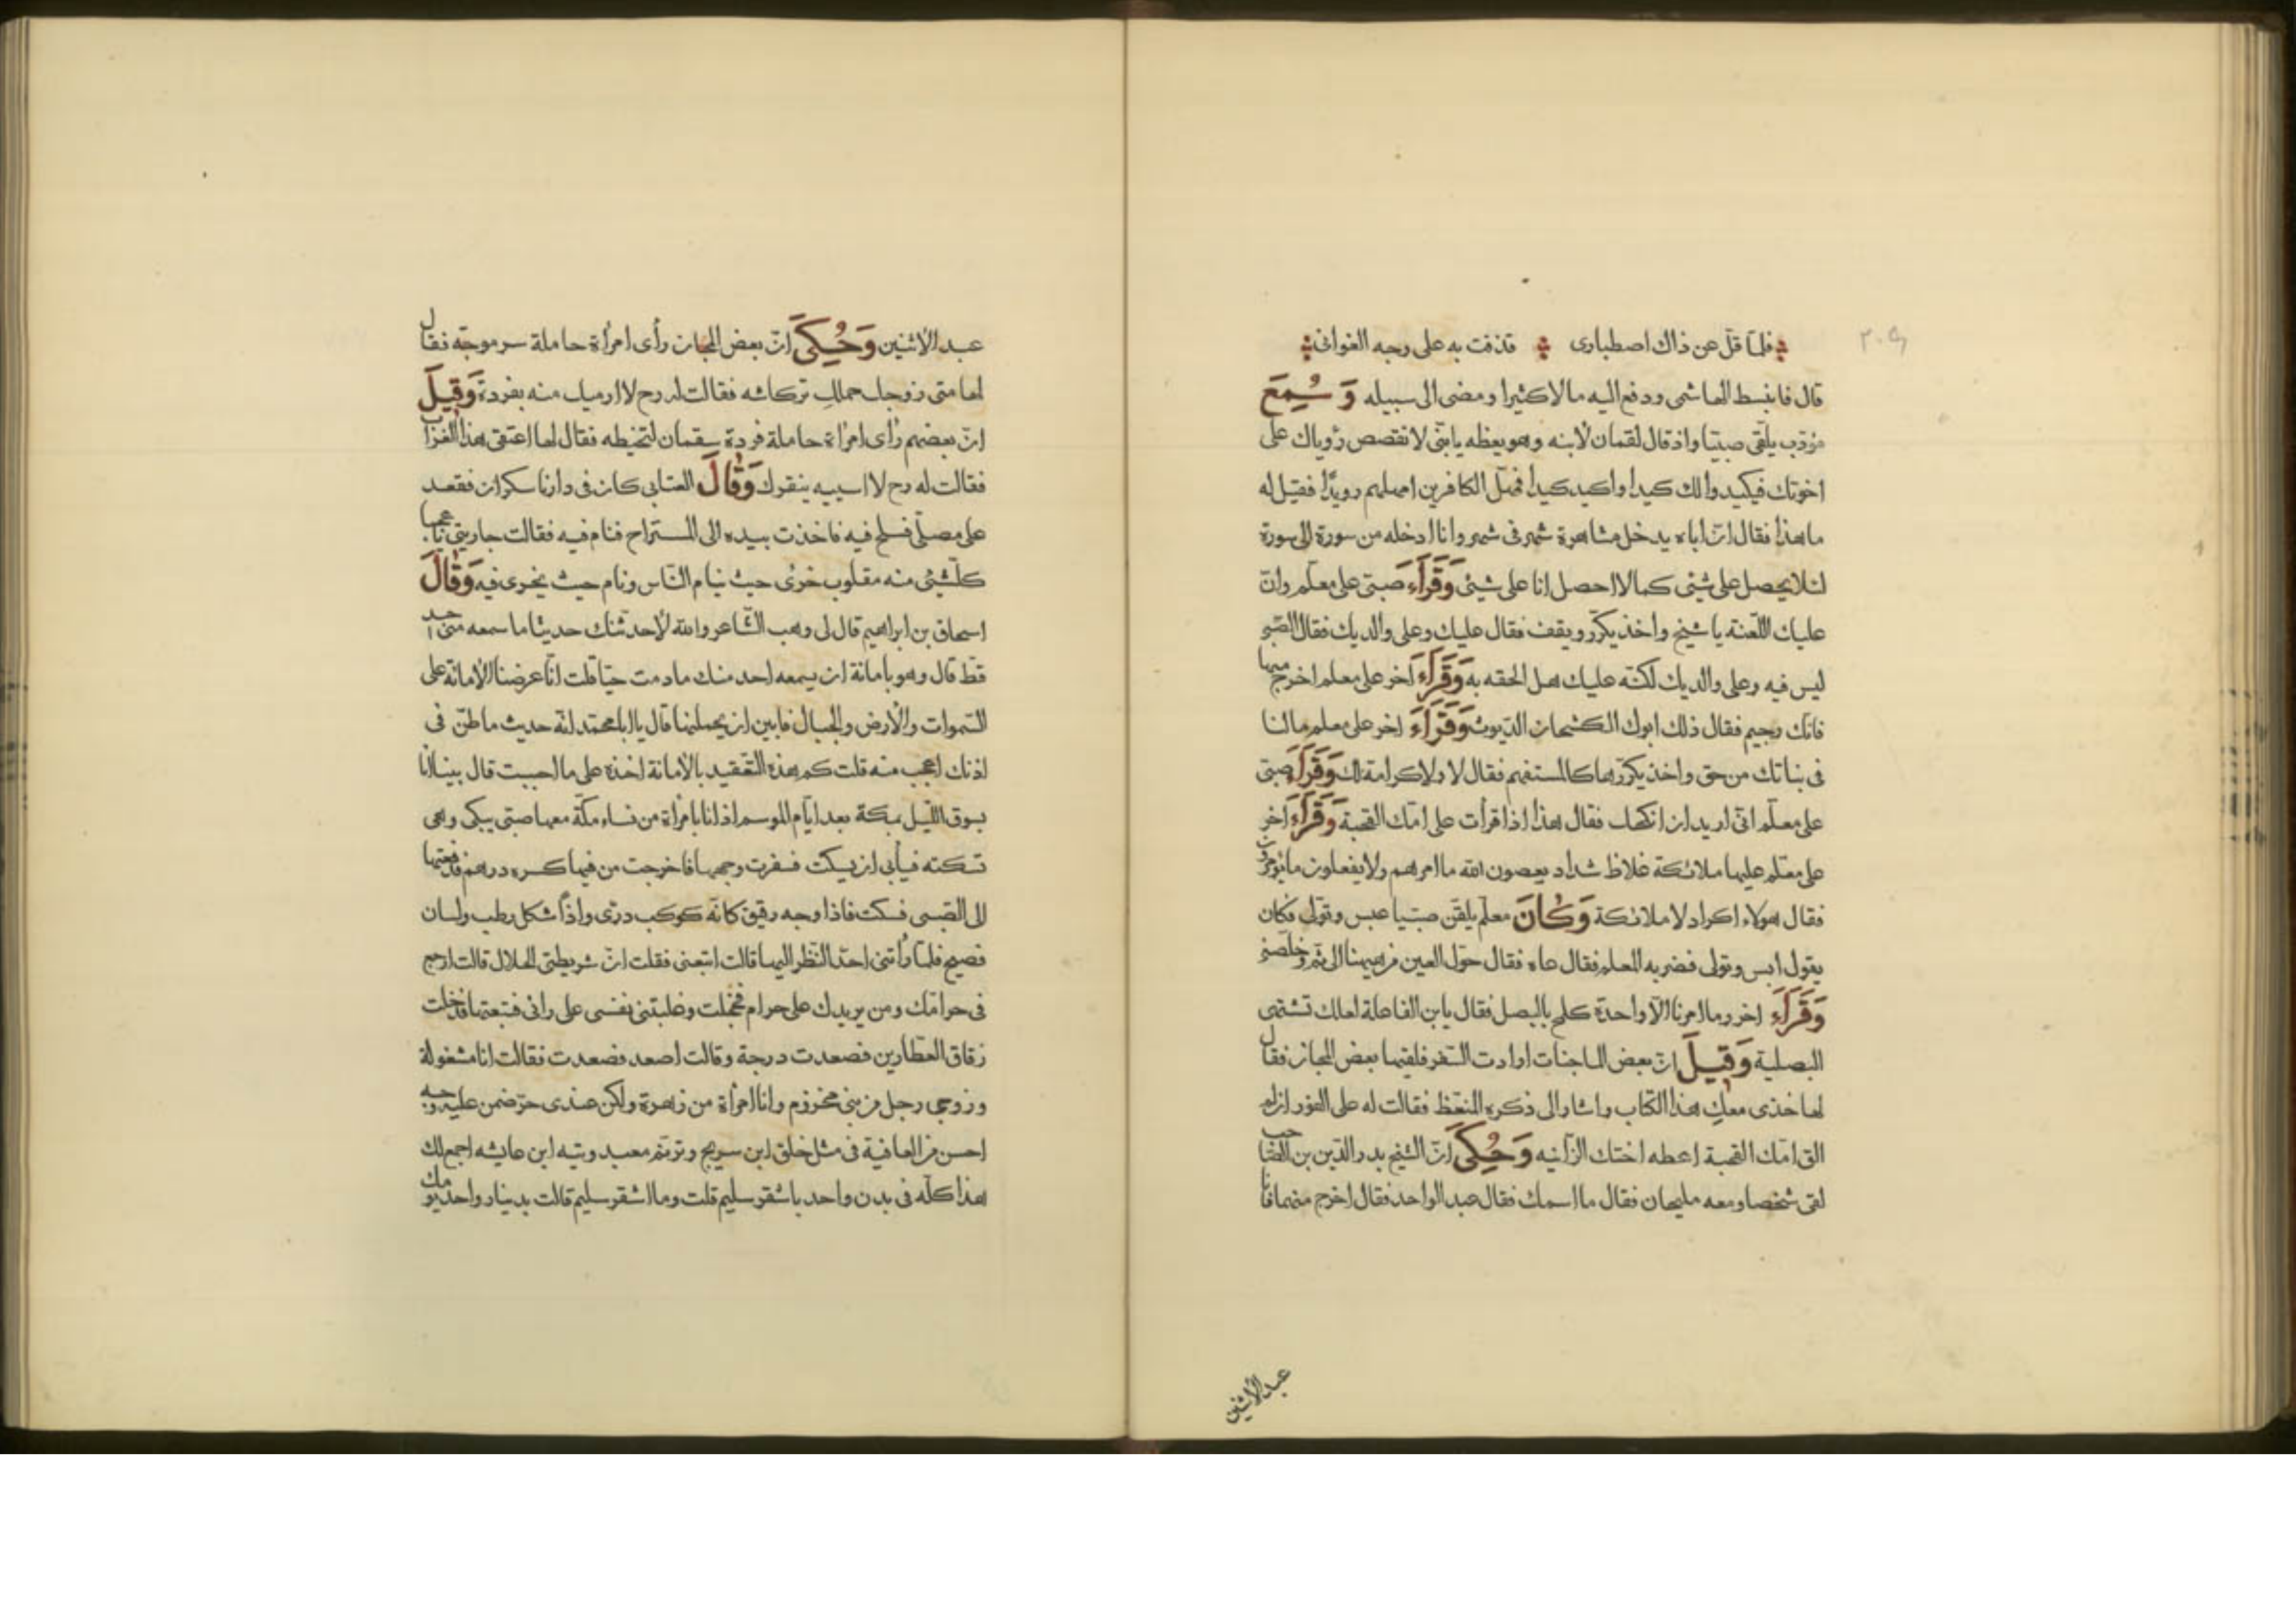 فلمّا قلّ عن ذاك اصطبارى قذفت به على وجه الغوانى
قال فانبسط الهاشمى ودفع اليه مالا كثيرا ومضى الى سبيله وَسُمِعَ
مؤدّب يلقّى صبيّا واذ قال لقمان لابنه وهو يعظه يا بنىّ لا تقصص رؤياك على
اخوتك فيكيدوا لك كيدا واكيد كيدا فمهّل الكافرين امهلهم رويدًا فقيل له
ما هذا فقال انّ اباه يدخل مشاهرة شهر فى شهر وانا ادخله من سورة الى سورة
لئلا يحصل على شيئى كما لا احصل انا على شيئى وَقَرَاءَ صبىّ على معلّم وانّ
عليك اللّعنة يا شيخ واخذ يكرّر ويقف فقال عليك وعلى والديك فقال الصّبى
ليس فيه وعلى والديك لكنّه عليك هل الحقه به وَقَرَاءَ آخر على معلم اخرج منها
فانّك رجيم فقال ذلك ابوك الكشحان الدّيوث وَقَرَاءَ اخر على معلم مالنا
فى بناتك من حق واخذ يكرّرها كالمستفهم فقال لا ولا كرامة لك وَقَرَاءَ صبىّ
على معلّم انّى اريد ان انكحك فقال هذا اذا قرأت على امّك القحبة وَقَرَاءَ اخر
على معلّم عليها ملائكة غلاظ شداد يعصون الله ما امرهم ولا يفعلون ما يؤمرون
فقال هولاء اكراد لا ملائكة وَكَانَ معلّم يلقّن صبّيا عبس وتولّى فكان
يقول ابس وتولى فضربه المعلم فقال عاه فقال حوّل العين من هيهنا الى ثمّ وخلّصنى
وَقَرَاءَ اخر وما امرنا الّا واحدة كلمح بالبصل فقال يا بن الفاعلة لعلك تشتهى
البصلية وَقِيلَ انّ بعض الماجنات ارادت السّفر فلقيها بعض المجان فقال
لها خذى معكِ هذا الكتاب واشار الى ذكره المنعّظ فقالت له على الفور ان لم
الق امّك القحبة اعطه اختك الزّانيه وَحُكِىَ انّ الشّيخ بدر الدّين بن الصّاحب
لقى شخصا ومعه مليحان فقال ما اسمك فقال عبد الواحد فقال اخرج منهما فانا
عبد الأثنين
عبد الأثنين وَحُكِىَ انّ بعض المجان رأى امرأة حاملة سرموجّه فقال
لها متى زوجك حملكِ تركاشه فقالت له رح لا ارميك منه بفردة وَقِيلَ
انّ بعضهم رأى امرأة حاملة فردة سقمان لتخيطه فقال لها اعتقى هذا الغراب
فقالت له رح لا اسيبه ينقرك وَقَالَ العتابى كان فى دارنا سكران فقعد
على مصلّى فسلح فيه فاخذت بيده الى المستراح فنام فيه فقالت جاريتى يا عجبا
كلّ شيئى منه مقلوب خرئ حيث ينام النّاس ونام حيث يخرى فيه وَقَالَ
اسحاق بن ابراهيم قال لى وهب الشّاعر والله لأحدثنك حديثا ما سمعه منّى احد
قطّ قال وهو بامانة ان يسمعه احد منك ما دمت حيّا قلت انّا عرضنا الأمانة على
السّموات والأرض والجبال فابين ان يحملنها قال يا ابا محمّد انّه حديث ما طنّ فى
اذنك اعجب منه قلت كم هذه التعقيد بالأمانة اخذه على ما احببت قال بينا انا
بسوق اللّيل بمكة بعد ايّام الموسم اذ انا بامرأة من نساء مكّة معها صبىّ يبكى وهى
تسكته فيأبى ان يسكت فسفرت وجهها فاخرجت من فيها كسره درهم فدفعتها
الى الصّبى فسكت فاذا وجه رقيق كانّه كوكب درّى واذا شكل رطب ولسان
فصيح فلمّا رأتنى احدّ النّظر اليها قالت اتبعنى فقلت انّ شريطتى الحلال قالت ارجع
فى حرامّك ومن يريدك على حرام فخجلت وغلبتنى نفسى على رائى فتبعتها فدخلت
زقاق العطّارين فصعدت درجة وقالت اصعد فصعدت فقالت انا مشغولة
وزوجى رجل من بنى مخزوم وانا امرأة من زهرة ولكن عندى حرّ ضمن عليه وجه
احسن من العافية فى مثل خلق ابن سريج وترنّم معبد وتيه ابن عايشه اجمع لك
هذا كلّه فى بدن واحد باشقر سليم قلت وما اشقر سليم قالت بدينار واحد يومك